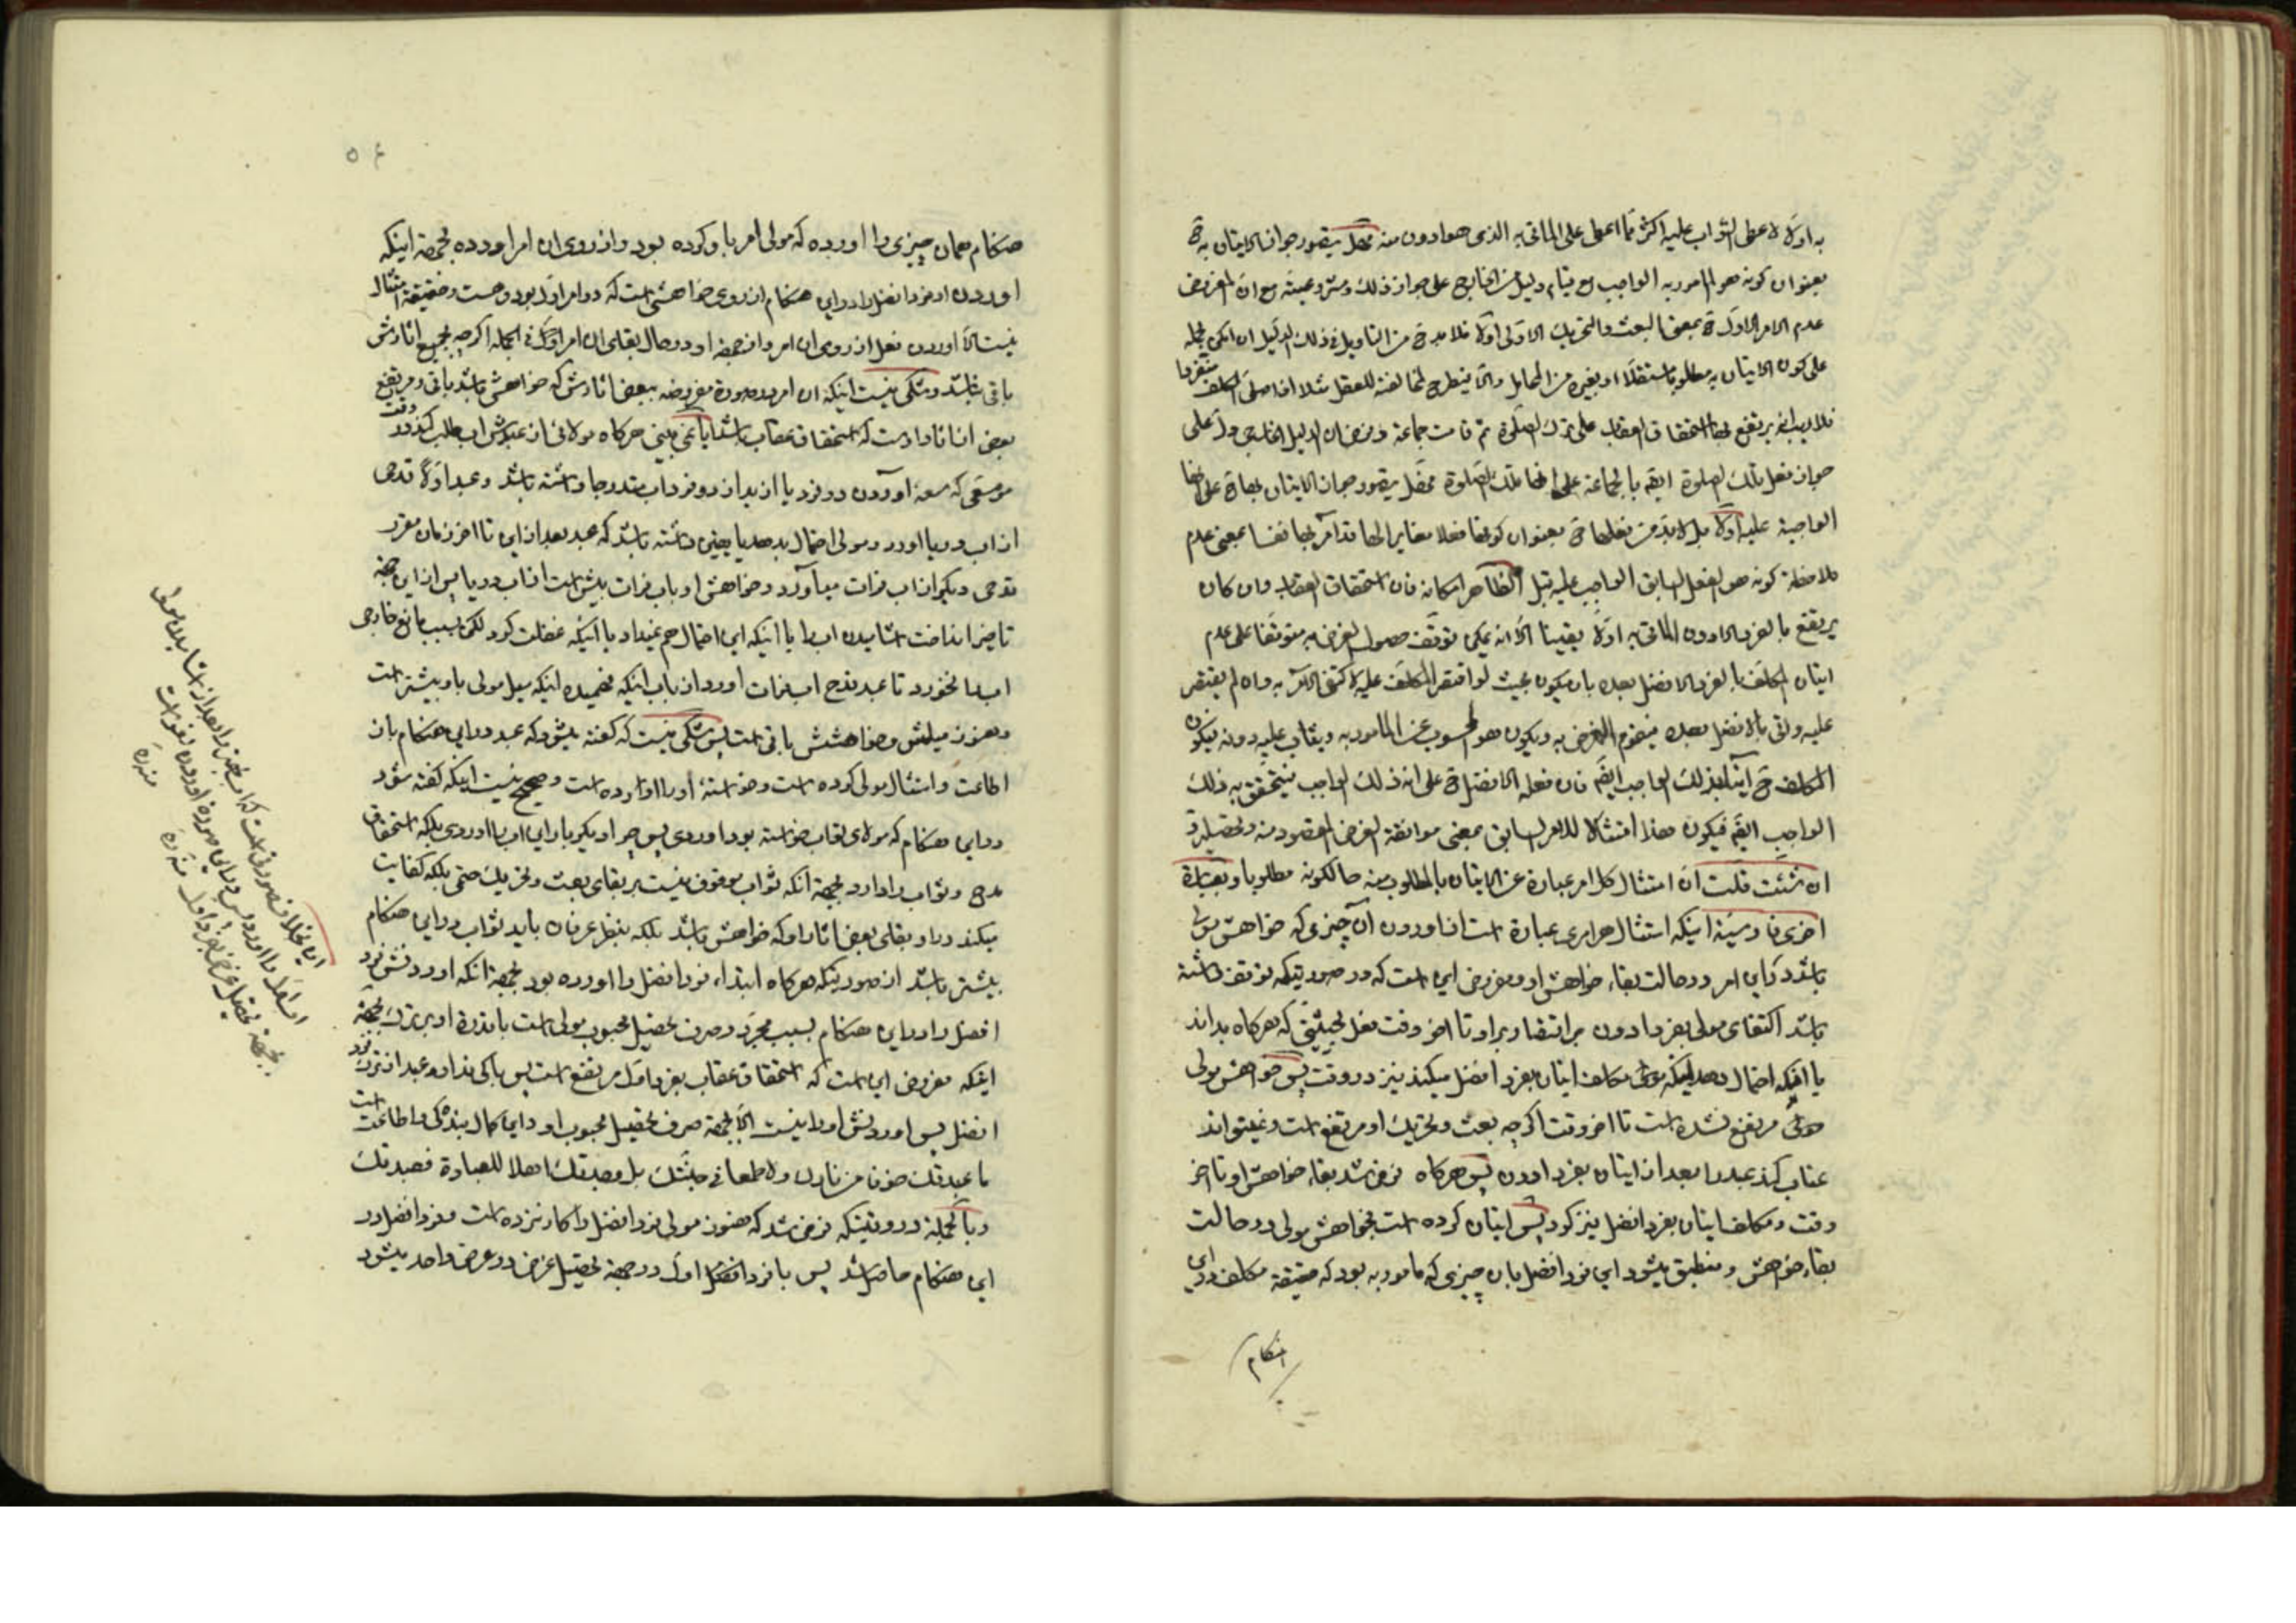 به اولا لاعطى الثواب عليه اكثر مما اعطى على الماتى به الذى هو ادون منه فهل يتصور جواز الاتيان به ح
بعنوان كونه هو المامور به الواجب مع قيام دليل من الخارج على جواز ذلك و مشروعيته مع ان المفروض
عدم الامر الاول ح بمعنى البعث والتحريك الاولى اولا فلا بد ح من التاويل فى ذلك الدليل ان امكن بحمله
على كون الاتيان به مطلوبا مستقلا او بغيره من المحامل والا فيطرح لمخالفته للعقل مثلا اذا صلى المكلف منفردا
فلا ريب انه يرتفع بها استحقاق العقاب على ترك الصلوة ثم قامت جماعة وفرض ان الدليل الخارجى دل على
جواز فعل تلك الصلوة ايضا بالجماعة على انها تلك الصلوة فهل يتصور جواز الاتيان بها ح على انها
الواجبة عليه اولا بل لابد من فعلها ح بعنوان كونها فعلا مغايرا لها قد امر بها نفسا بمعنى عدم
ملاحظة كونه هو الفعل السابق الواجب عليه قبل الظاهر امكانه فان استحقاق العقاب وان كان
يرتفع بالفرد الادون الماتى به اولا يقينا الا انه يمكن توقف حصول الغرض به متوقفا على عدم
اتيان المكلف بالفرد الافضل بعده بان يكون بحيث لو اقتصر المكلف عليه لاكتفى الامر به وان لم يقتصر
عليه واتى بالافضل بعده فيقوم الغرض به ويكون هو المحسوب عن المامور به ويثاب عليه دونه فيكون
المكلف ح آتيا بذلك الواجب ايضا فان فعله الافضل ح على انه ذلك الواجب فيتحقق به ذلك
الواجب ايضا فيكون هذا امتثالا للامر السابق بمعنى موافقة الغرض المقصود منه وتحصيله و
ان شئت قلت ان امتثال كل امر عبارة عن الاتيان بالمطلوب منه حالكونه مطلوبا وبعبارة
اخرى فارسية اينكه امتثال هر امرى عبارة است از اوردن آن چيزى كه خواهش مولى
باشد در اين امر در حالت بقاء خواهش او و مفروض اين است كه در صورتيكه توقف داشته
باشد اكتفاى مولى بفرد ادون بر اقتصار بر او تا اخر وقت فعل بحيثيتى كه هر گاه بداند
يا اينكه احتمال دهد اينكه مكلف اتيان بفرد افضل ميكند نيز در وقت پس خواهش مولى
مرتفع نشده است تا اخر وقت اگر چه بعث و تحريك او مرتفع است و نميتواند
عتاب كند عبد را بعد از اتيان بفرد ادون پس هر گاه فرض شد بقاء خواهش او تا اخر
وقت و مكلف اتيان بفرد افضل نيز كرد پس اتيان كرده است بخواهش مولى در حالت
بقاء خواهش و منطبق ميشود اين فرد افضل بان چيزى كه مامور به بود كه حقيقة مكلف در اين
هنگام
۵۴
هنگام همان چيزى را اورده كه مولى امر باو كرده بود و از روى ان امر اورده بجهة اينكه
اوردن او فرد افضل را در اين هنگام از روى خواهشى است كه در امر اول بود و هست و حقيقة امتثال
نيست الا اوردن فعل از روى ان امر و از جهة او در حال بقاى ان امر اول فى الجمله اگر چه بجميع اثارش
باقى نباشد و شكى نيست اينكه ان امر در صورة مفروضه ببعض اثارش كه خواهش باشد باقى و مرتفع
بعض از اثار اوست كه استحقاق عقاب باشد ايا نمى بينى هر گاه مولائى از عبدش اب طلب كند در وقت
موسعى كه سعه اوردن دو فرد يا ازيد از دو فرد اب متدرجا داشته باشد و عبد اولا قدحى
از اب دريا اورد و مولى احتمال بدهد يا يقين داشته باشد كه عبد بعد از اين تا اخر زمان مقرر
قدحى ديگر از اب فرات مياورد و خواهش او باب فرات بيش است از اب دريا پس از اين جهة
تاخير انداخت اشاميدن اب را يا اينكه اين احتمال هم نميداد يا اينكه غفلت كرد لكن بسبب مانع خارجى
اب را نخورد تا عبد قدح اب فرات اورد از باب اينكه فهميده اينكه ميل مولى باو بيشتر است
و هنوز ميلش و خواهشش باقى است پس شكى نيست كه گفته ميشود كه عبد در اين هنگام باز
اطاعت و امتثال مولى كرده است و خواسته او را اورده است و صحيح نيست اينكه گفته شود
در اين هنگام كه مولاى تو اب خواسته بود اوردى پس چرا ديگر بار اين اب را اوردى بلكه استحقاق
مدح و ثواب را دارد بجهة انكه ثواب موقوف نيست بر بقاى بعث و تحريك حتمى بلكه كفايت
ميكند در او بقاى بعض اثار او كه خواهش باشد بلكه بنظر عرفان بايد ثواب در اين هنگام
بيشتر باشد از صورتيكه هر گاه ابتداء فرد افضل را اورده بود بجهة انكه اوردنش فرد
افضل را در اين هنگام بسبب مجرد و صرف تحصيل محبوب مولى است با قدرة او بر ترك بجهة
اينكه مفروض اين است كه استحقاق عقاب بفرد اول مرتفع است پس باكى ندارد عبد از ترك فرد
افضل پس اوردنش او را نيست الا بجهة صرف تحصيل محبوب او و اين كمال بندگى و اطاعت است
ما عبدتك خوفا من نارك ولا طمعا فى جنتك بل وجدتك اهلا للعبادة فعبدتك
و بالجملة در وقتيكه فرض شد كه هنوز مولى فرد افضل را كار نزده است و فرد افضل در
اين هنگام حاصل شد پس با فرد اول در جهة تحصيل غرض در عرض واحد ميشود